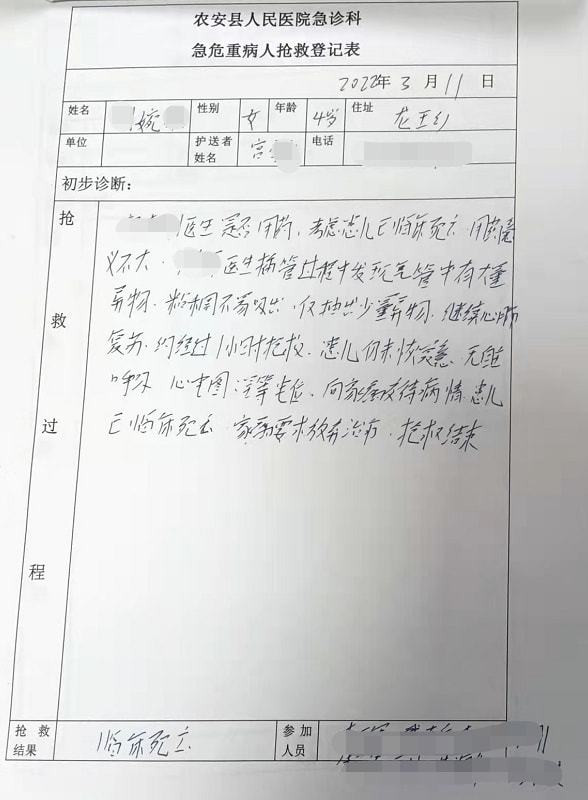 农安县人民医院急诊科
急危重病人抢救登记表
2022年3月11日
姓名 婉 性别 女 年龄 4岁 住址 龙王乡
单位 护送者姓名 宫 电话
初步诊断:
抢救过程
医生是否用药,考虑患儿已临床死亡,用药意
义不大。医生插管过程中发现气管中有大量
异物,粘稠不易吸出,仅抽出少量异物,继续心肺
复苏,约经过1小时抢救,患儿仍未恢复意、无自
呼吸,心电图:等电位,向家属交待病情患儿
已临床死亡,家属要求放弃治疗,抢救结束
抢救结果 临床死亡 参加人员